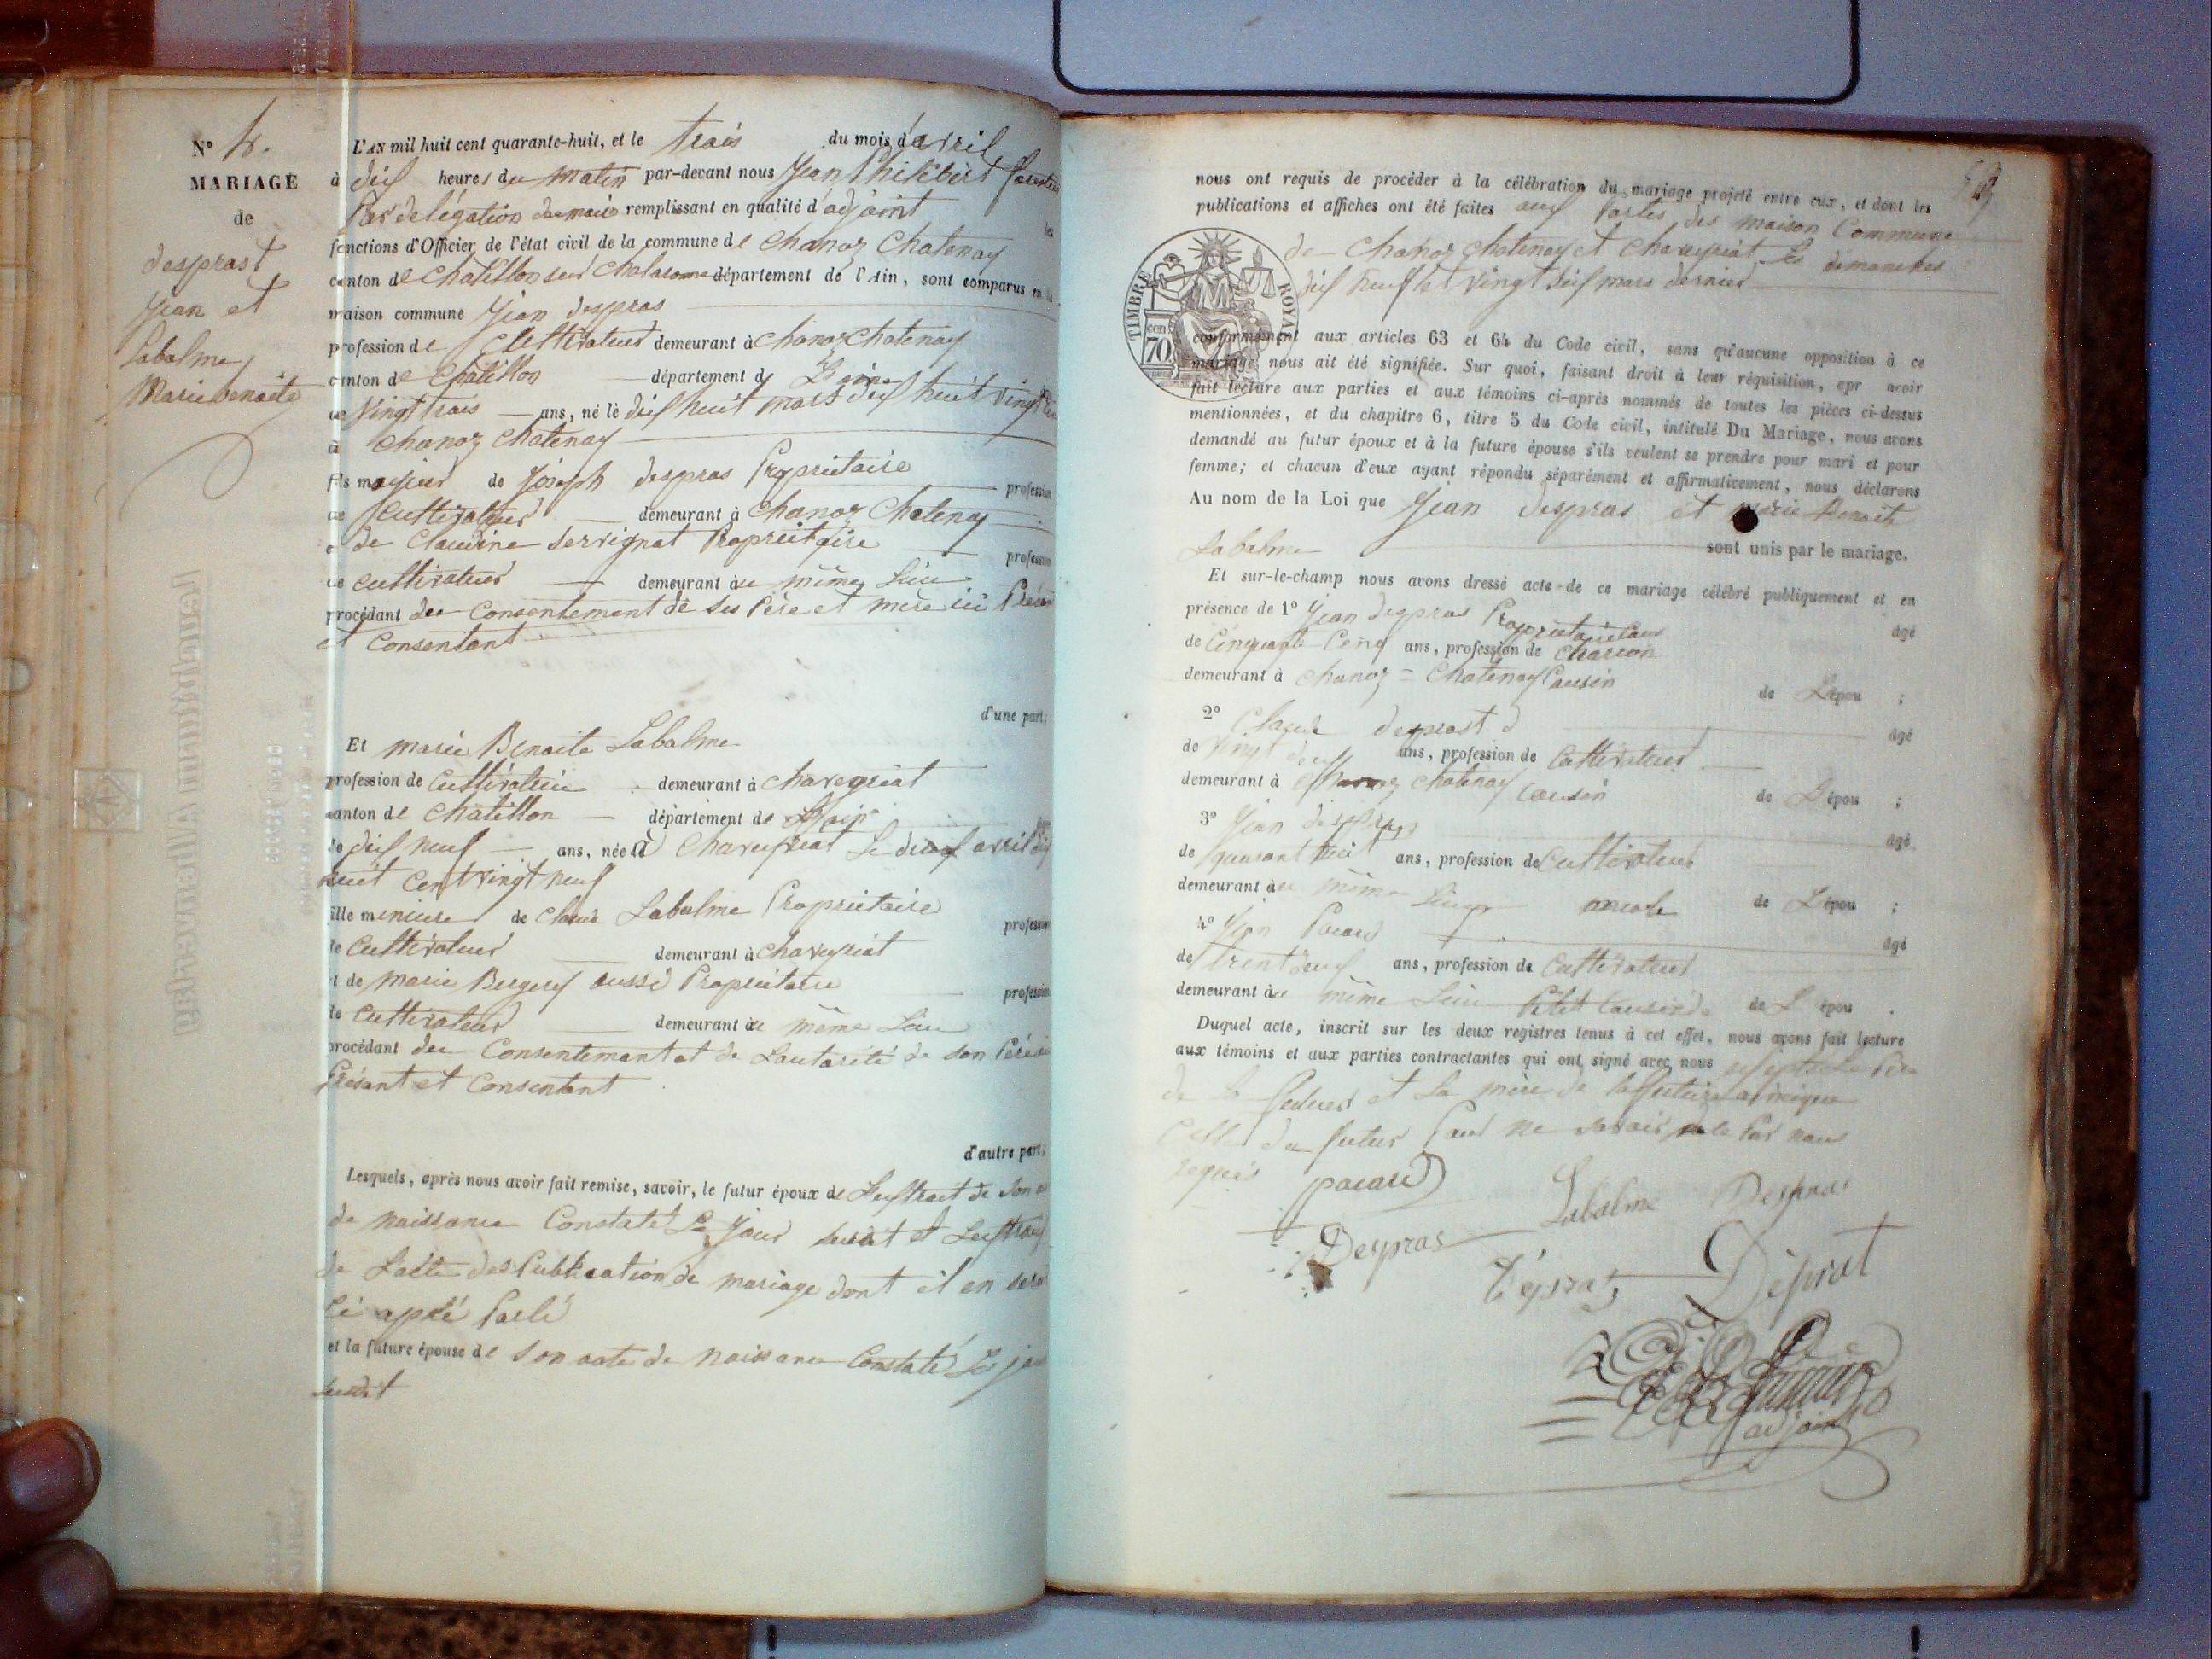 N° 4.
MARIAGE
de
desprast
Jean et
Labalme
Marie benoite
L'AN mil huit cent quarante-huit, et le trois du mois d'avril
à dix heures du matin par-devant nous Jean Philibert
Par delégation du maire remplissant en qualité d'adjoint les
fonctions d'Officier de l'état civil de la commune de Chanoz Chatenay
canton de Chatillon sur Chalaronne département de l'Ain, sont comparus en la
maison commune Jean despras
profession de Cultivateur demeurant à Chanoz Chatenay
canton de Chatillon département de L'ain
de Vingt trois ans, né le dix huit mars dix huit Vingt
à Chanoz Chatenay
fils majeur de Joseph despras Propriétaire profession
de Cultivateur demeurant à Chanoz Chatenay
et de Claudine Servignat Propriétaire profession
de cultivateur demeurant au même Lieu
procédant du Consentement de ses Père et mère ici Présent
et Consentant
d'une part;
Et marie Benoite Labalme
profession de Cultivateur demeurant à Chaveyriat
canton de Chatillon département de L'ain
de dix neuf ans, née à Chaveyriat Le deux avril dix
huit Cent vingt neuf
fille mineure de Claude Labalme Propriétaire profession
de Cultivateur demeurant à Chaveyriat
et de marie Bergery aussi Propriétaire profession
de Cultivateur demeurant au même Lieu
procédant du Consentement et de Lautorité de son Père ici
Présant et Consentant
d'autre part;
Lesquels, après nous avoir fait remise, savoir, le futur époux de Lextrait de son
de naissance Constaté Le Jour susdit et Lextrait
de Lacte des Publication de mariage dont il en sera
ci après Parlé
et la future épouse de son acte de naissance Constaté Le jour
susdit
nous ont requis de procéder à la célébration du mariage projeté entre eux, et dont les
publications et affiches ont été faites aux Portes des maison Commune
de Chanoz Chatenay et Chaveyriat Les dimanches
dix neuf et Vingt six mars dernier
TIMBRE ROYAL
70 cen
conformément aux articles 63 et 64 du Code civil, sans qu'aucune opposition à ce
mariage nous ait été signifiée. Sur quoi, faisant droit à leur réquisition, apr avoir
fait lecture aux parties et aux témoins ci-après nommés de toutes les pièces ci-dessus
mentionnées, et du chapitre 6, titre 5 du Code civil, intitulé Du Mariage, nous avons
demandé au futur époux et à la future épouse s'ils veulent se prendre pour mari et pour
femme; et chacun d'eux ayant répondu séparément et affirmativement, nous déclarons
Au nom de la Loi que Jean despras et marie Benoite
Labalme sont unis par le mariage.
Et sur-le-champ nous avons dressé acte de ce mariage célébré publiquement et en
présence de 1° Jean despras Propriétaire âgé
de Cinquante Cinq ans, profession de Charron
demeurant à Chanoz = Chatenay Cousin de L'épou ;
2° Claude desprast âgé
de Vingt deux ans, profession de Cultivateur
demeurant à Chanoz Chatenay cousin de L'épou ;
3° Jean despras âgé
de quarant huit ans, profession de Cultivateur
demeurant au même Lieu oncle de L'épou ;
4° Jean Pocard âgé
de trent deux ans, profession de Cultivateur
demeurant au même Lieu Petit Cousin de L'épou .
Duquel acte, inscrit sur les deux registres tenus à cet effet, nous avons fait lecture
aux témoins et aux parties contractantes qui ont signé avec nous
de la future et La mère de la future
Celle du futur Pour ne savoir de Par nous
requis
Pocard Labalme Despras
Despras Déprat
adjoint